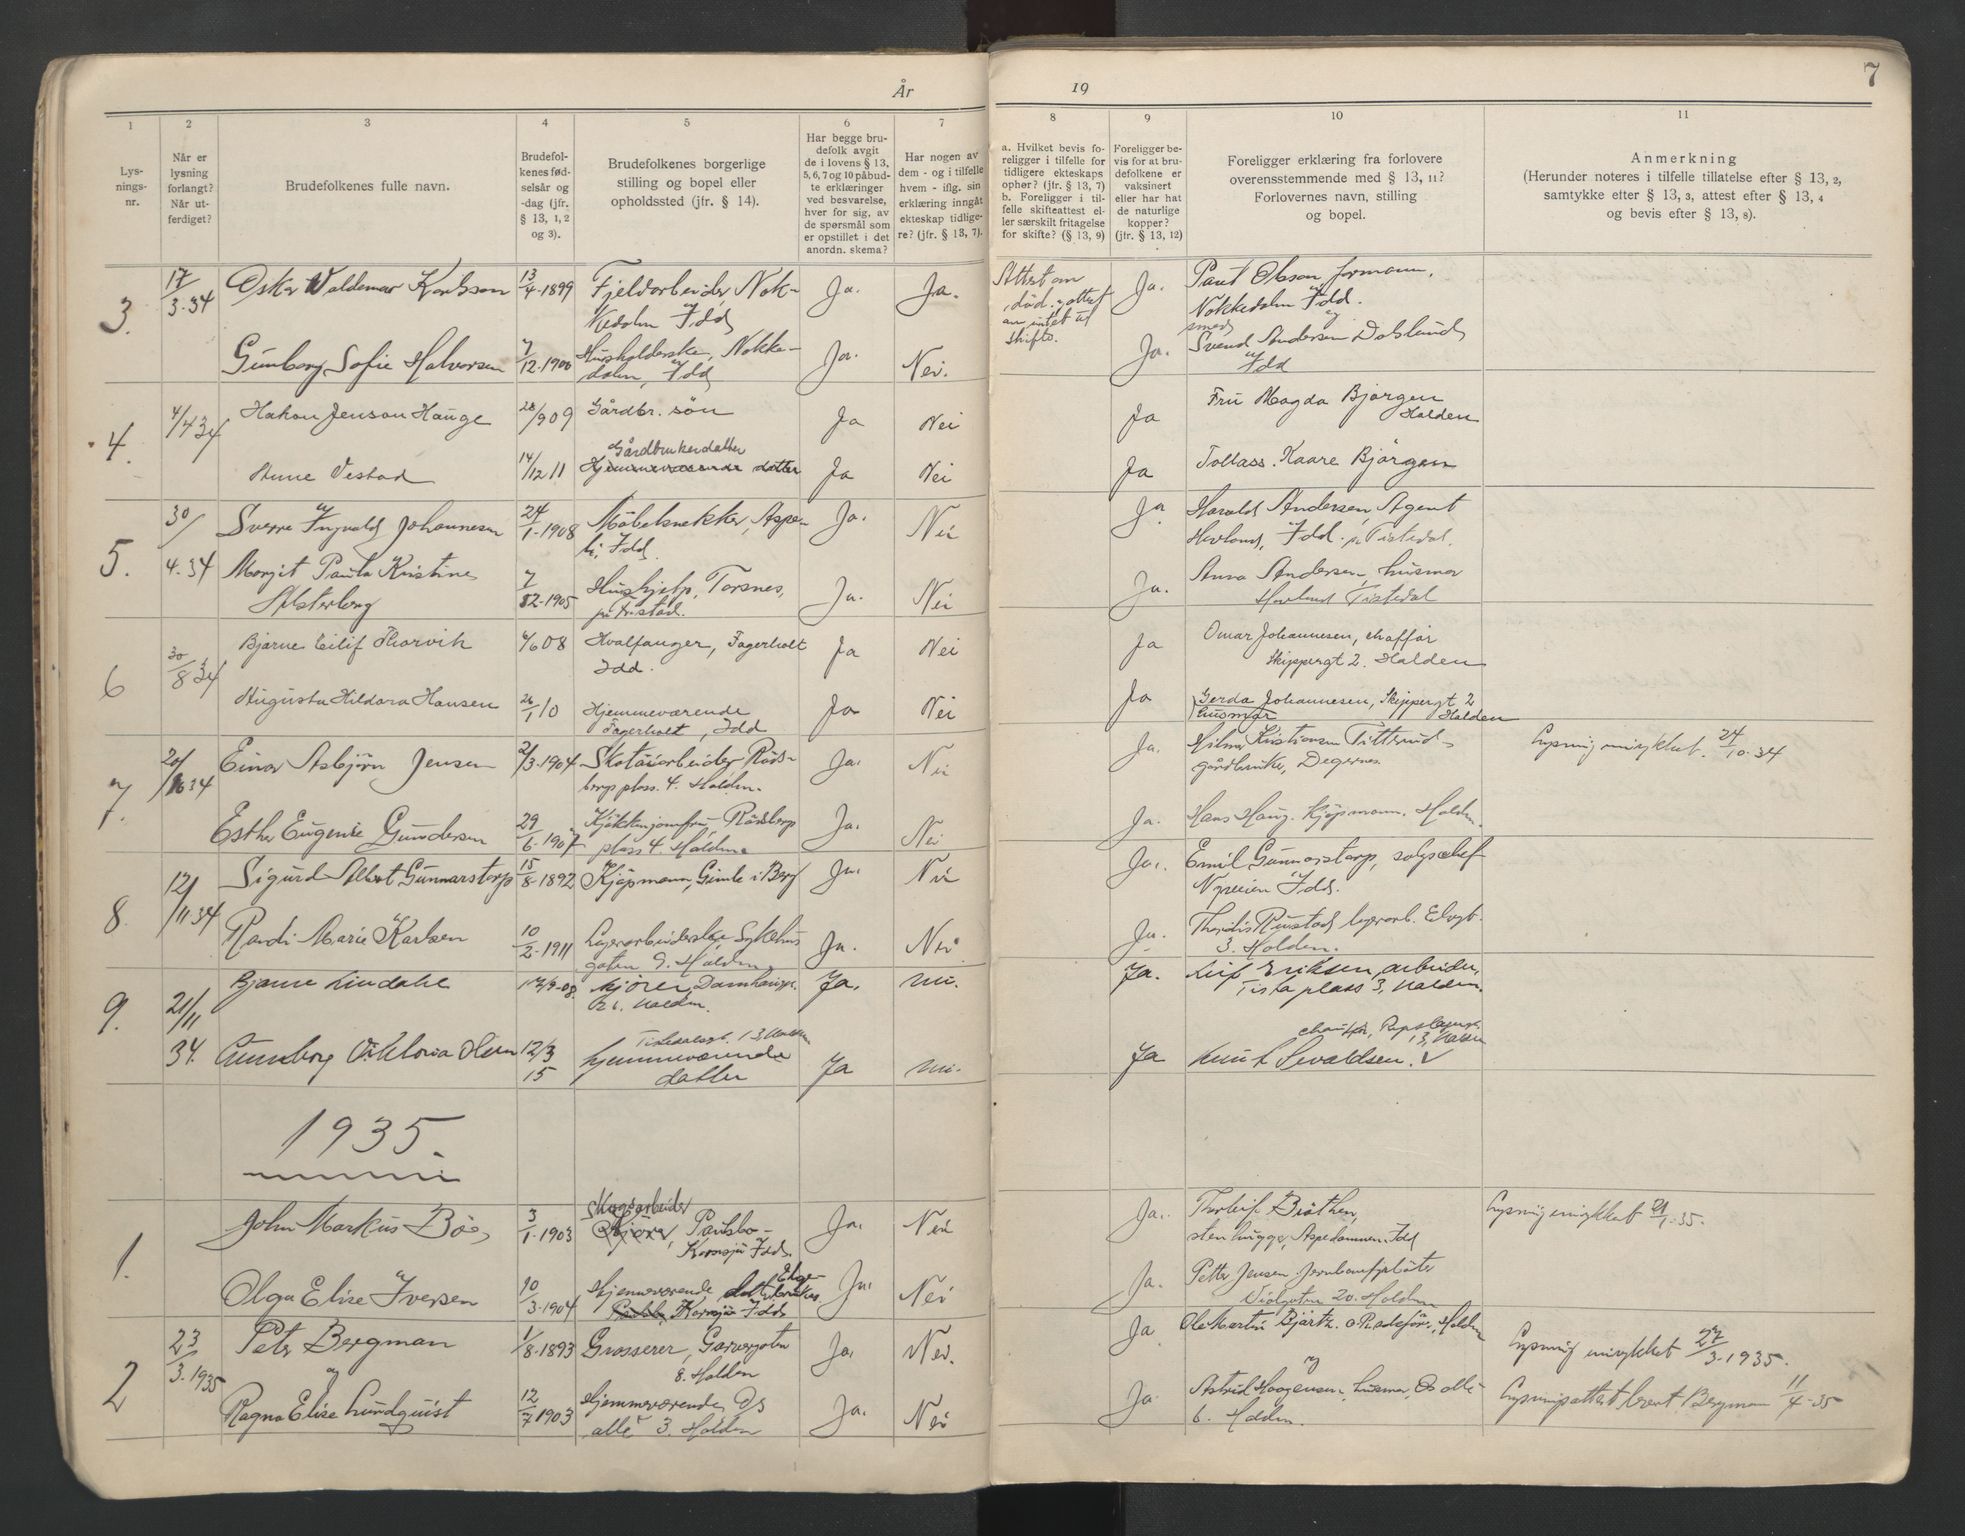 År
19
7
1
2
3
4
5
6
7
8
9
10
11
Lys-
nings-
nr.
Når er
lysning
forlangt?
Når ut-
ferdiget?
Brudefolkenes fulle navn.
Brudefol-
kenes fød-
selsår og
-dag (jfr.
§ 13, 1, 2
og 3).
Brudefolkenes borgerlige
stilling og bopel eller
opholdssted (jfr. § 14).
Har begge bru-
defolk avgit
de i lovens § 13,
5, 6, 7 og 10 påbud-
te erklæringer
ved besvarelse,
hver for sig, av
de spørsmål som
er opstillet i det
anordn. skema?
Har nogen av
dem - og i tilfelle
hvem - iflg. sin
erklæring inngåt
ekteskap tidlige-
re? (jfr. § 13, 7).
a. Hvilket bevis fo-
religger i tilfelle for
tidligere ekteskaps
ophør? (jfr. § 13, 7)
b. Foreligger i til-
felle skifteattest el-
ler særskilt fritagelse
for skifte? (§ 13, 9)
Foreligger be-
vis for at bru-
defolkene er
vaksinert
eller har hat
de naturlige
kopper?
(jfr. § 13, 12)
Foreligger erklæring fra forlovere
overensstemmende med § 13, 11?
Forlovernes navn, stilling
og bopel.
Anmerkning
(Herunder noteres i tilfelle tillatelse efter § 13, 2,
samtykke efter § 13, 3, attest efter § 13, 4
og bevis efter § 13, 8).
3.
17/3-34
Oskar Valdemar Karlsson
13/4-1899
Fjeldarbeider, Nok-
kedalen Idd
Ja.
Ja.
Attest om
død. attest
om intet til
skifte.
Ja.
Paul Olsson formann,
Nokkedalen Idd.
og
Gunborg Sofie Halvorsen
7/12-1900
Husholderske, Nokke-
dalen, Idd
Ja.
Nei.
Ja.
smed
Svend Andersen Dalslund
Idd
4.
4/4 34
Hakon Jenson Hauge
28/9 09
Gårdbr. søn
Ja
Nei
Ja
Fru Magda Bjørgen
Halden
Anne Vestad
14/12 11
Gårdbrukerdatter
Hjemmeværende datter
Ja
Nei
Ja
Tollass. Kaare Bjørgen
5.
30/4-34
Sverre Ingvald Johannesen
24/1-1908
Møbelsnekker, Aspe-
li, Idd.
Ja.
Nei
Ja
Harald Andersen, Agent
Hovland, Idd. pr Tistedal.
Margit Paula Kristine
7/12-1905
Hushjelp, Torsnes,
pr. Fr.stad.
Ja.
Nei
Ja.
Anna Andersen, husmor
Hovland Tistedal
6
30/8 34
Bjarne Eilif Thorvik
4/6 08
Hvalfanger, Fagerholt
Idd.
Ja
Nei
Ja
Omar Johannesen, chaffør
Skippergt 2. Halden
Augusta Hildara Hansen
26/1 10
Hjemmeværende
Fagerholt, Idd
Ja
Nei
Ja
Gerda Johannesen, Skippergt 2
husmor Halden
7.
20/10 34
Einar Asbjørn Jensen
2/3-1904
Skotøiarbeider Røds-
bergs plass. 4. Halden.
Ja.
Nei
Ja.
Hilmar Kristiansen Titterud
gårdbruker, Degernes.
Lysning mirykket. 24/10-34
Esther Eugenie Gundersen
29/6-1907
Kjøkkenjomfru, Rødsberg
plass 4. Halden
Ja.
Nei
Ja.
Hans Haug. Kjøpmann. Halden.
8.
12/11 34
Sigurd Albert Gunnarstorp
15/8 1892
Kjøpmann, Gimle i Berg
Ja.
Nei
Ja.
Emil Gunnarstorp, salgschef
Idd.
Randi Marie Karlsen
10/2-1911
Lagerarbeiderske Sykehus
gaten 9. Halden
Ja.
Nei
Ja.
Thordis Rustad lagerarb. Elvegt.
3. Halden.
9.
21/11 34.
Bjarne Lindahl
17/9-08.
kjører, Damhaugs-
Halden
Ja.
nei.
Ja.
Leif Eriksen, arbeider,
Tista plass 3, Halden.
Gunnborg Viktoria Hem
12/3 15
Tistedalsgt. 13, Halden
hjemmeværende
datter
Ja
nei.
Ja
chauffør, Repslagergt.
13, Halden
Knut Sevaldsen.
1935.
1.
John Markus Bøe
3/1-1903
Skogsarbeider
Kjører, Paulsbo-
Kornsjø Idd.
Ja.
Nei
Ja.
Thorleif Bråthen,
stenhugger, Aspedammen. Idd
Lysning mirykket 21/1-35.
Olga Elise Iversen
10/3-1904
Hjemmeværende
Kornsjø Idd
Ja.
Nei
Ja.
Petter Jensen. Jernbanefyrbøter
Violgaten 20. Halden
2
23/3-1935
Petr Bergman
1/8-1893
Grosserer, Garvergaten
8. Halden
Ja.
Nei.
Ja
Ole Martin Bjørk. Halden
og
Lysning mirykket 27/3-1935.
og
Ragna Elise Lundquist
12/7 1903
Hjemmeværende, Os
allé 3. Halden
Ja.
Nei
Ja
Astrid Haagensen, husmor, Os allé
6. Halden.
Lysningsattest levert Bergman 11/4-35